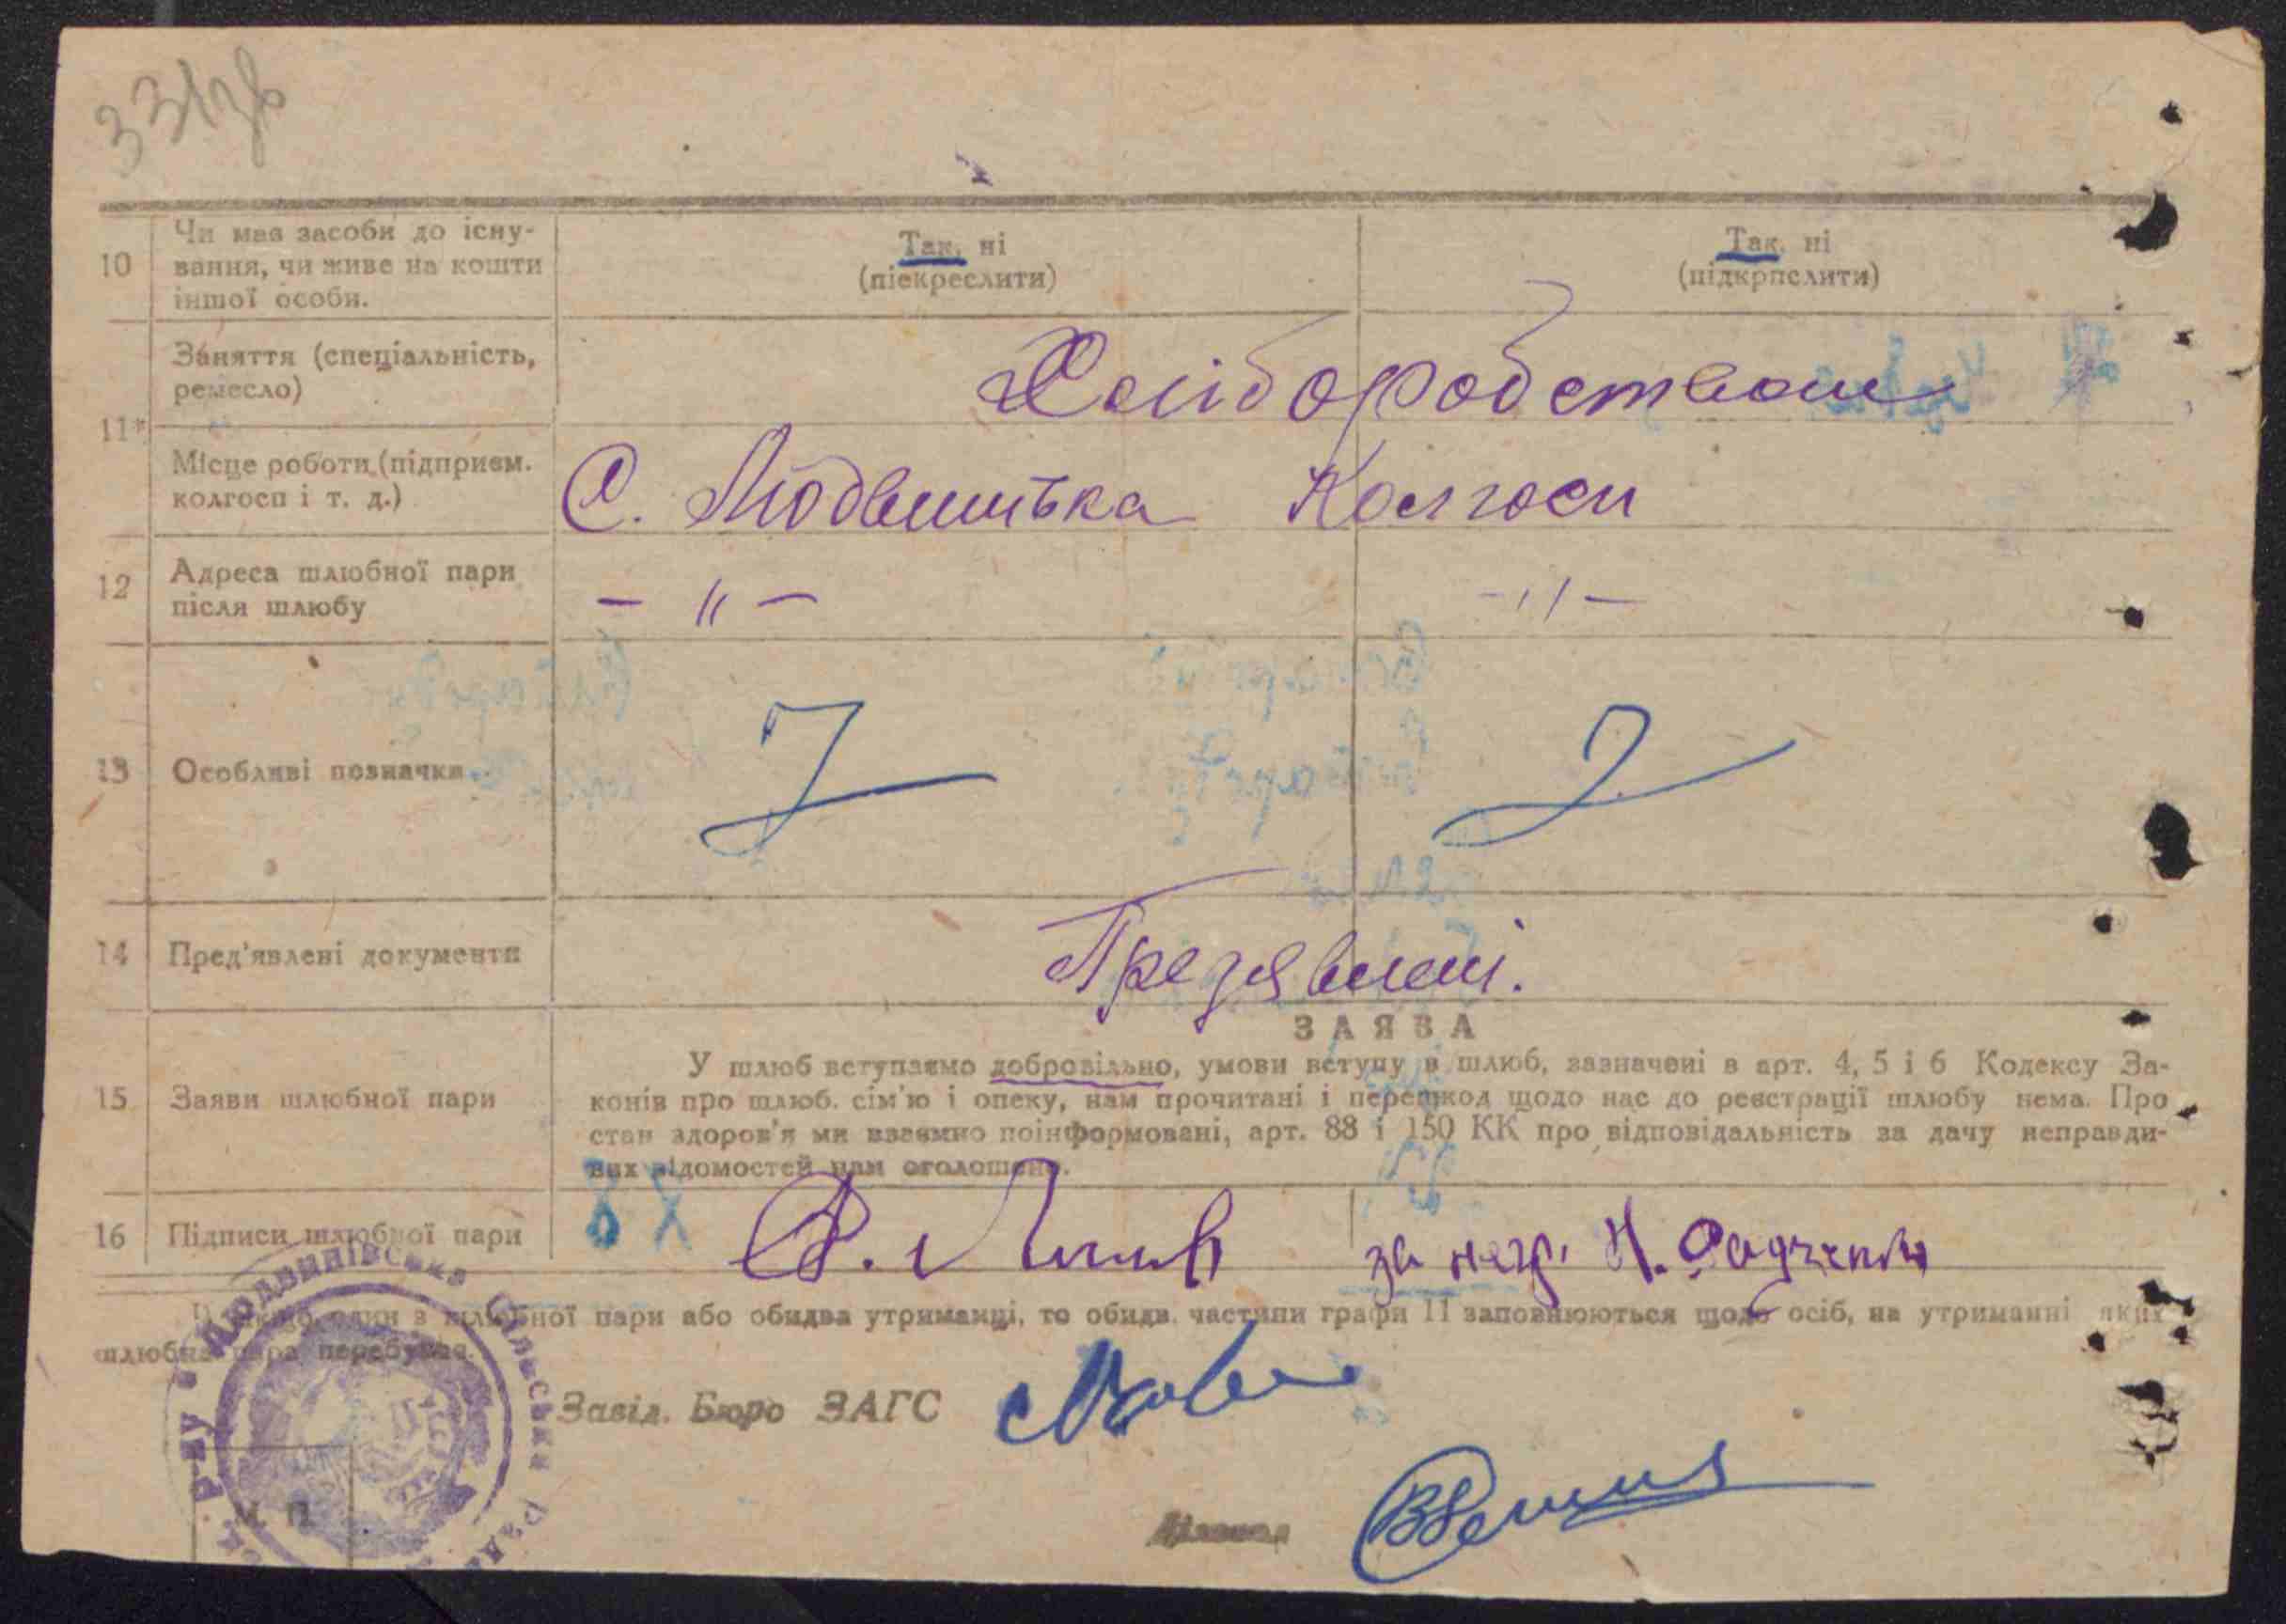 331зв
10 Чи має засоби до існу-
вання, чи живе на кошти
іншої особи.
Так, ні
(піекреслити)
Так, ні
(підкрпслити)
Заняття (спеціальність,
ремесло)
Хліборобством
11*
Місце роботи (підприєм.
колгосп і т. д.)
С. Людвинівка Колгосп
12 Адреса шлюбної пари
після шлюбу
– 〃 – – 〃 –
13 Особливі позначки
14 Пред'явлені документи
Предявлені.
ЗАЯВА
15 Заяви шлюбної пари
У шлюб вступаємо добровільно, умови вступу в шлюб, зазначені в арт. 4, 5 і 6 Кодексу За-
конів про шлюб. сім'ю і опеку, нам прочитані і перешкод щодо нас до реєстрації шлюбу нема. Про
стан здоров'я ми взаємно поінформовані, арт. 88 і 150 КК про відповідальність за дачу неправди-
вих відомостей нам оголошено.
16 Підписи шлюбної пари
за негр. Н. Радченко
один з шлюбної пари або обидва утриманці, то обидв. частини графи 11 заповнюються щодо осіб, на утриманні яких
шлюбна пара перебуває.
Людвинівська Сільська Рада
Р-ну
Завід. Бюро ЗАГС
М. П.